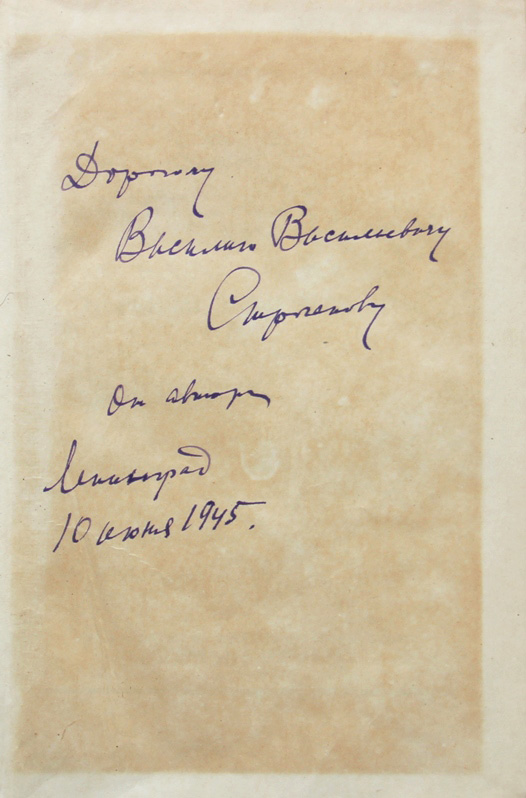 Дорогому
Василию Васильевичу
Строганову
От автора
Ленинград
10 июня 1945.